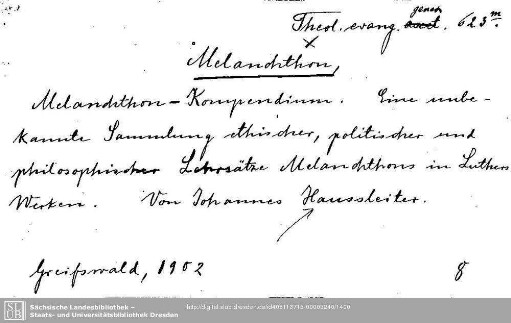 Theol. evang. gener. 623m.
Melanchthon,
Melanchthon-Kompendium. Eine unbe-
kannte Sammlung ethischer, politischer und
philosophischer Lehrsätze Melanchthons in Luthers
Werken. Von Johannes Haussleiter.
Greifswald, 1902 8
Sächsische Landesbibliothek –
Staats- und Universitätsbibliothek Dresden